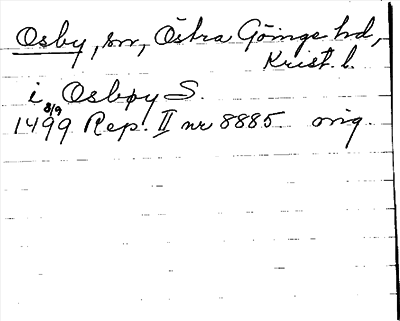 Osby, sn, Östra Göinge hd,
Krist. l.
i Osbøy S.
1499 8/9 Rep. II nr 8885 orig.